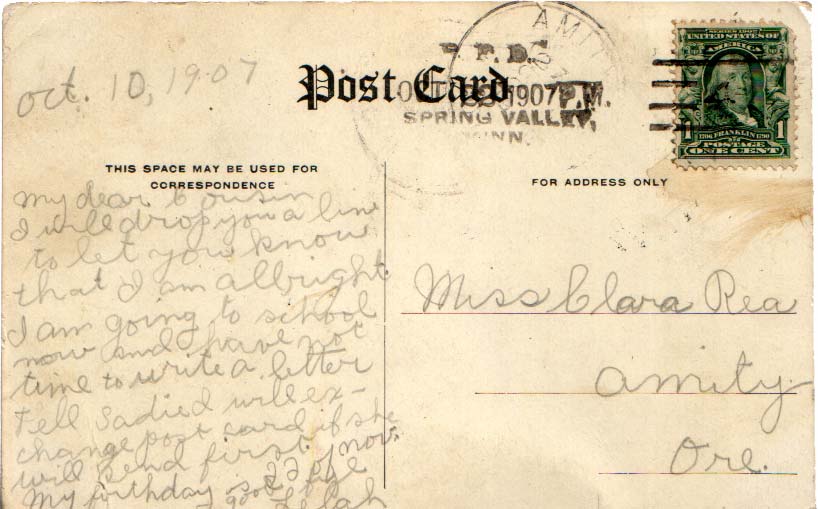 Oct. 10, 1907
Post Card
R.F.D.
AMIT
OCT 22 1907 P.M.
SPRING VALLEY,
MINN.
SERIES 1902
UNITED STATES OF
AMERICA
1706 FRANKLIN 1790
1 1
POSTAGE
ONE CENT
THIS SPACE MAY BE USED FOR
CORRESPONDENCE
FOR ADDRESS ONLY
My dear Cousin
I will drop you a line
to let you know
that I am allbright.
I am going to school
now and have not
time to write a letter
Tell Sadie I will ex-
change post card if she
will send first.
My birthday is 22 of Nov.
good bye
Miss Clara Rea
Amity
Ore.